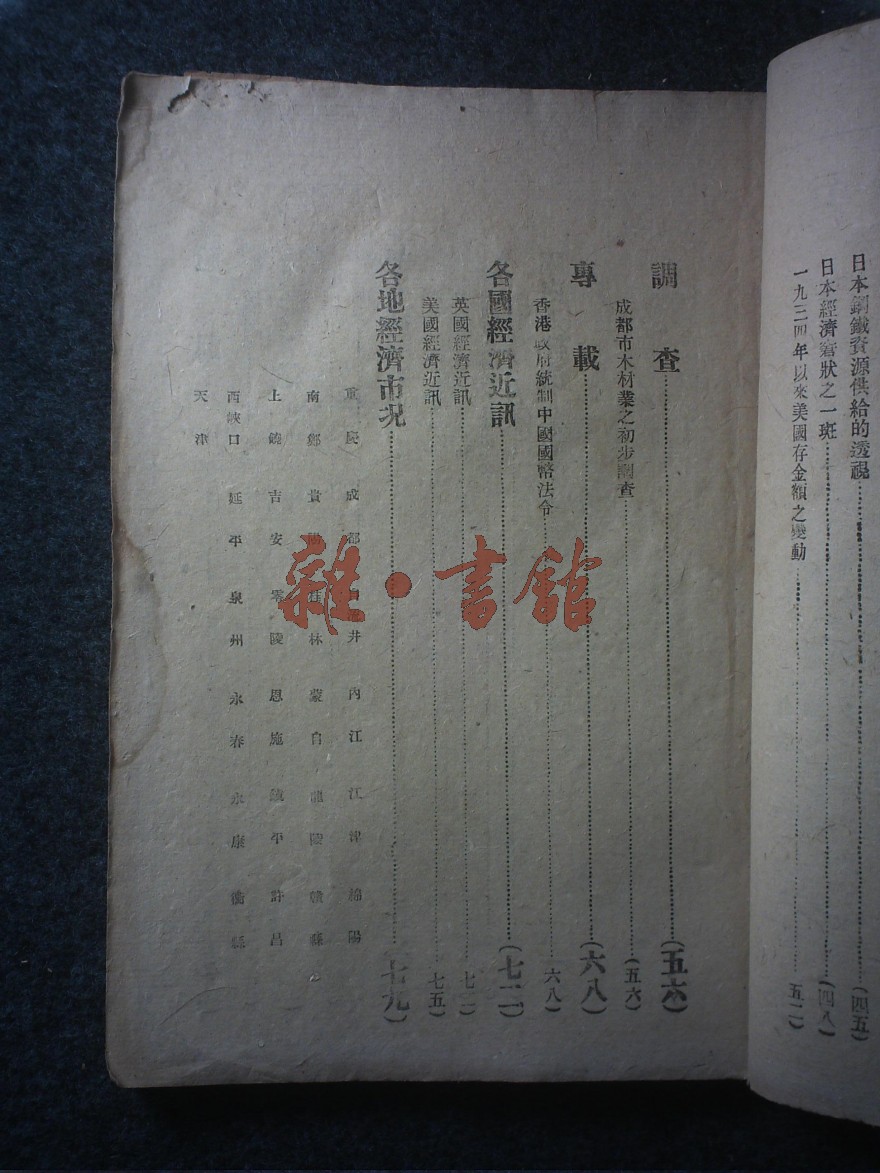 日本鋼鐵資源供給的透視……(四五)
日本經濟窘狀之一斑……(四八)
一九三四年以來美國存金額之變動……五二)
調查……(五六)
成都市木材業之初步調查……(五六)
專載……(六八)
香港政府統制中國國幣法令……六八)
各國經濟近訊……(七二)
英國經濟近訊……七二)
美國經濟近訊……七五)
各地經濟市况……七九)
重慶 成都 井 內江 江津 綿陽
南鄭 貴陽 桂林 蒙自 贛縣
上饒 吉安 零陵 恩施 鎮平 許昌
西峽口 延平 泉州 永春 永康 衢縣
天津
雜·書館